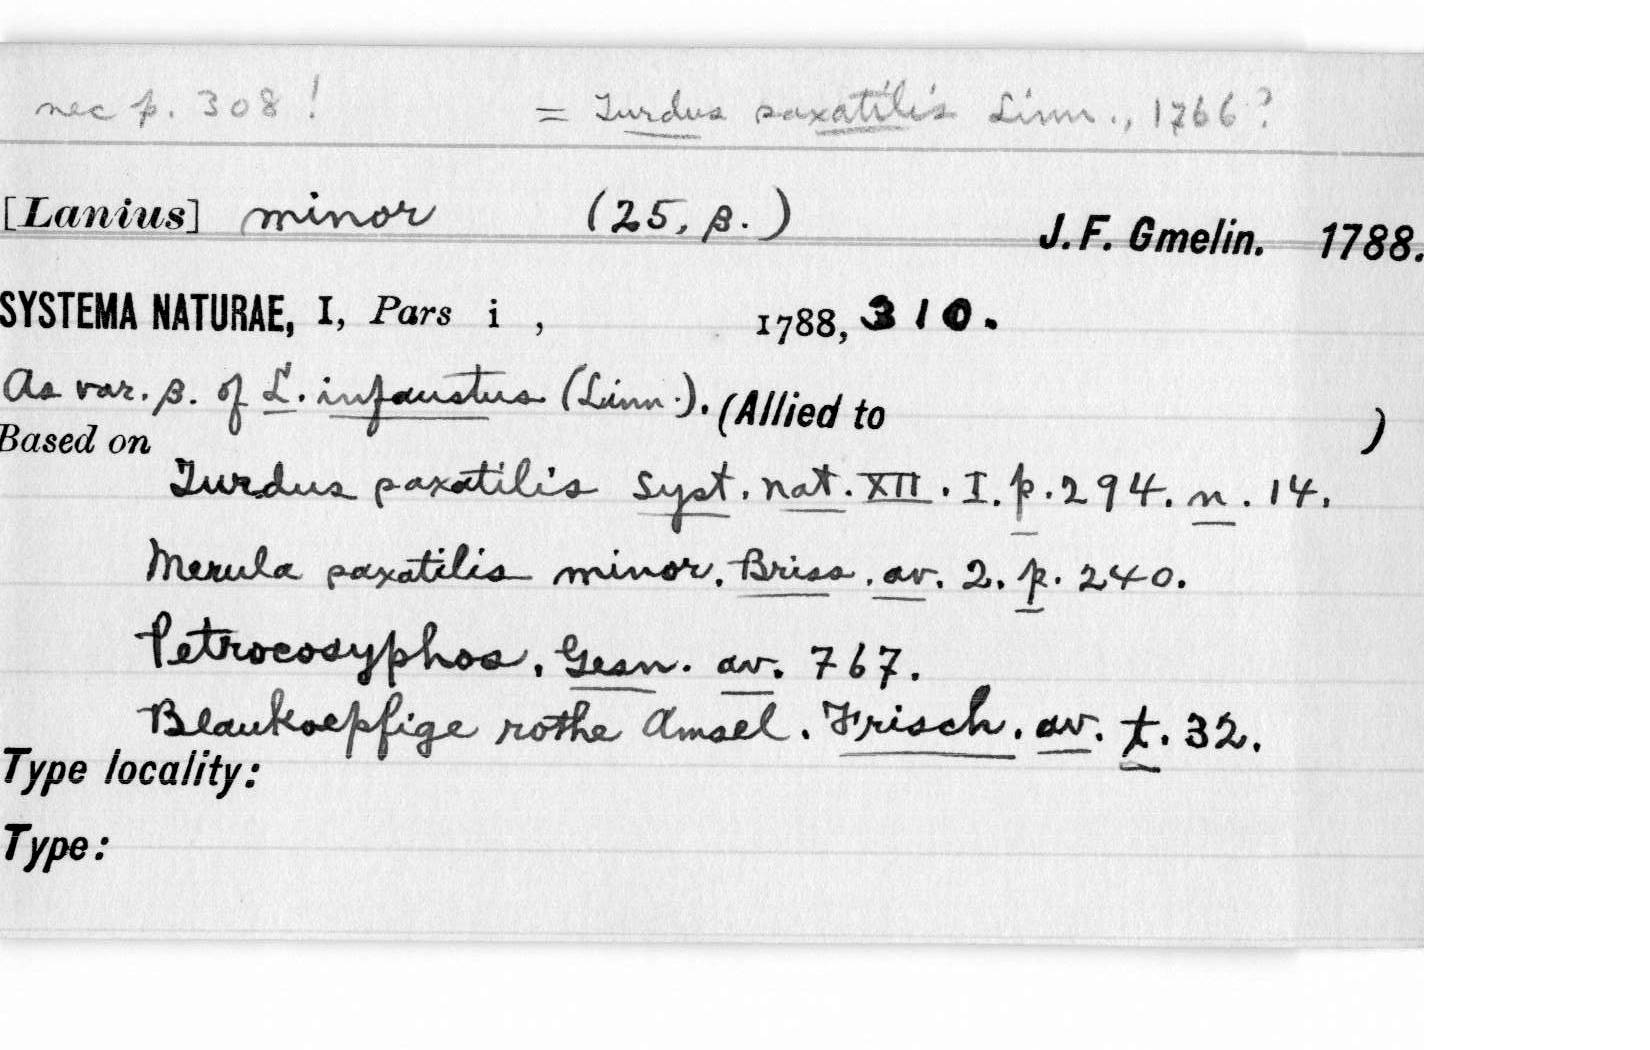 nec p. 308! = Turdus saxatilis Linn., 1766?
[Lanius] minor (25, β.) J. F. Gmelin. 1788.
SYSTEMA NATURAE, I, Pars i , 1788, 310.
As var. β. of L. infaustus (Linn.). (Allied to )
Based on
Turdus saxatilis Syst. nat. XII. I. p. 294. n. 14.
Merula saxatilis minor. Briss. av. 2. p. 240.
Petrocosyphos. Gesn. av. 767.
Blaukoepfige rothe Amsel. Frisch. av. t. 32.
Type locality:
Type: